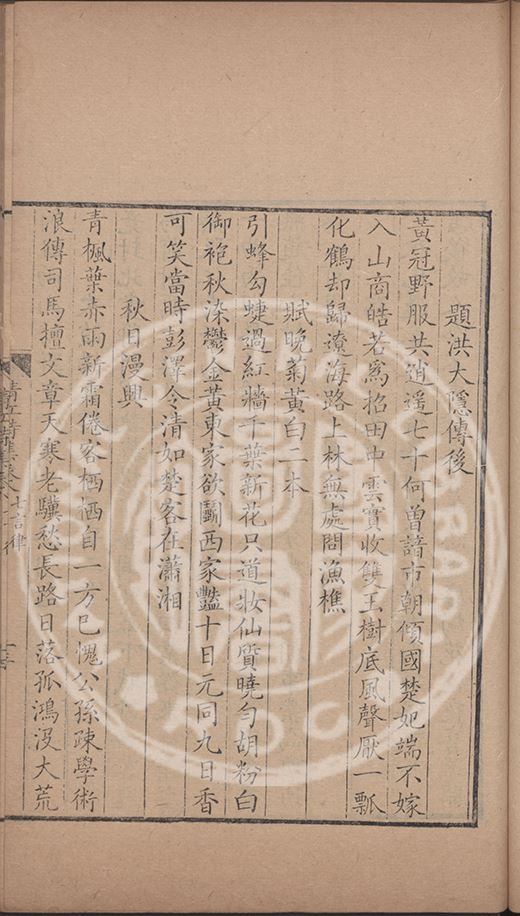 題洪大隱傳後
黃冠野服共逍遥七十何曾諳市朝傾國楚妃端不嫁
入山商皓若為招田中雲實收雙玉樹底風聲厭一瓢
化鶴却歸遼海路上林無處問漁樵
賦晚菊黃白二本
引蜂勾蜨過紅牆千葉新花只道妝仙質曉勻胡粉白
御袍秋染鬱金黃東家欲鬬西家豔十日元同九日香
可笑當時彭澤令清如楚客在瀟湘
秋日漫興
青楓葉赤雨新霜倦客栖栖自一方已愧公孫疎學術
浪傳司馬擅文章天寒老驥愁長路日落孤鴻沒大荒
七言律